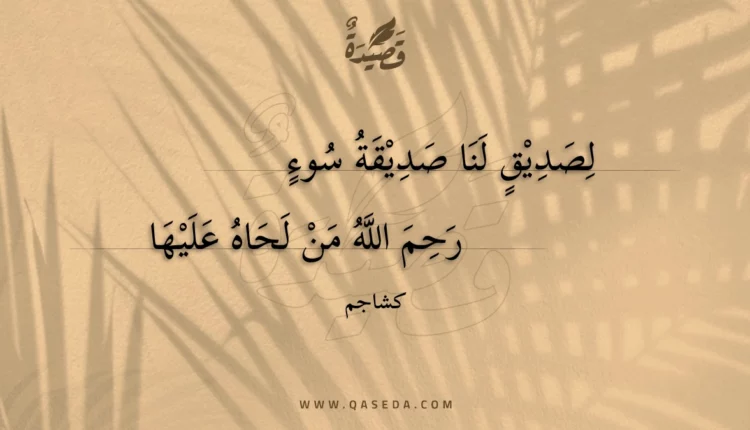 قَصِيْدَةٌ
لِصَدِيْقٍ لَنَا صَدِيْقَةُ سُوءٍ
رَحِمَ اللَّهُ مَنْ لَحَاهُ عَلَيْهَا
كشاجم
WWW.QASEDA.COM